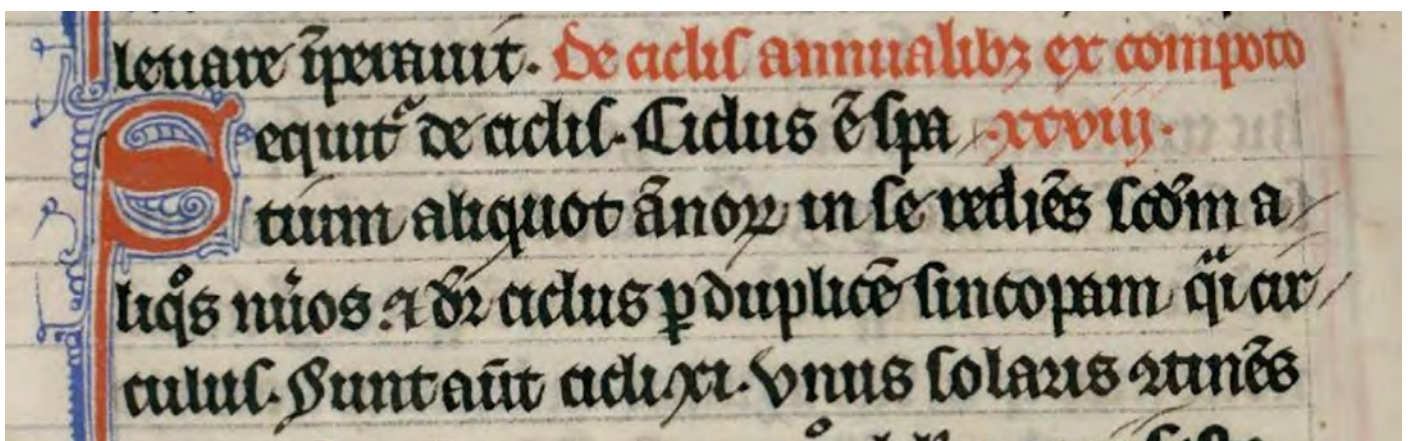 leuare īperauit. De ciclis annualibꝫ ex compoto
Sequit᷑ de ciclis. Ciclus ē spa .xxviij.
tium aliquot ānoꝝ in se rediēs scd̄m a
liqͦs nūos ⁊ dr̄ ciclus ꝑ duplicē sincopam qͣi cir
culus. Sunt aūt cicli xi. vnus solaris ꝯtinēs